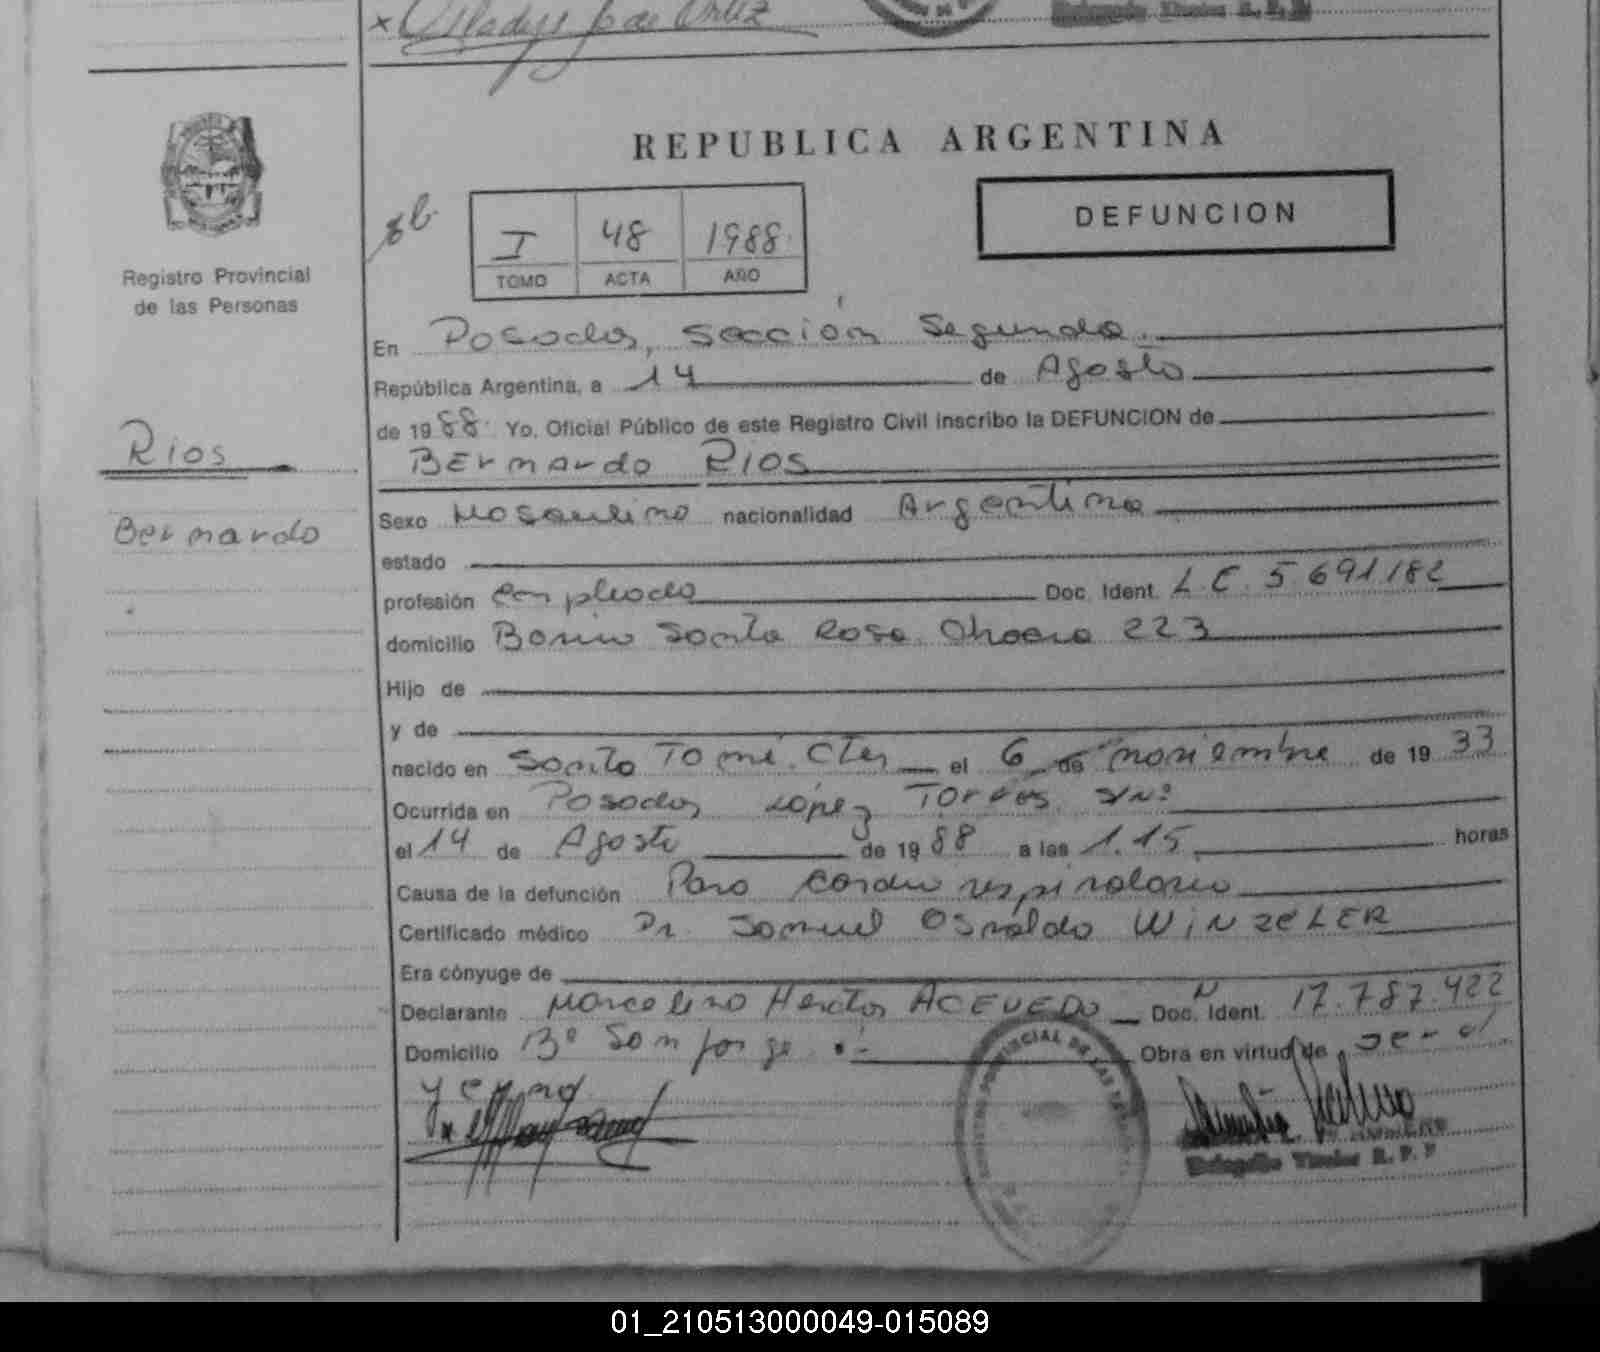 x Gladys
REPUBLICA ARGENTINA
DEFUNCION
I 48 1988
TOMO ACTA AÑO
Registro Provincial
de las Personas
En Posadas, sección Segunda.
República Argentina, a 14 de Agosto
de 1988. Yo, Oficial Público de este Registro Civil inscribo la DEFUNCION de
Rios
Bernardo Rios
Bernardo
Sexo Masculino nacionalidad Argentina
estado
profesión empleado Doc. Ident. L.E. 5 691182
domicilio Barrio Santa Rosa 223
Hijo de
y de
nacido en Santo Tomé. Ctes el 6 de noviembre de 1933
Ocurrida en Posadas López Torres S/Nº
el 14 de Agosto de 1988 a las 1.15 horas
Causa de la defunción Paro cardio respiratorio
Certificado médico Dr. Samuel Osvaldo WINZELER
Era cónyuge de
Declarante Marcelino Hector ACEVEDO Doc. Ident. 17.787.422
Domicilio Bº San Jorge Obra en virtud de
Titular R. P. P
01_210513000049-015089